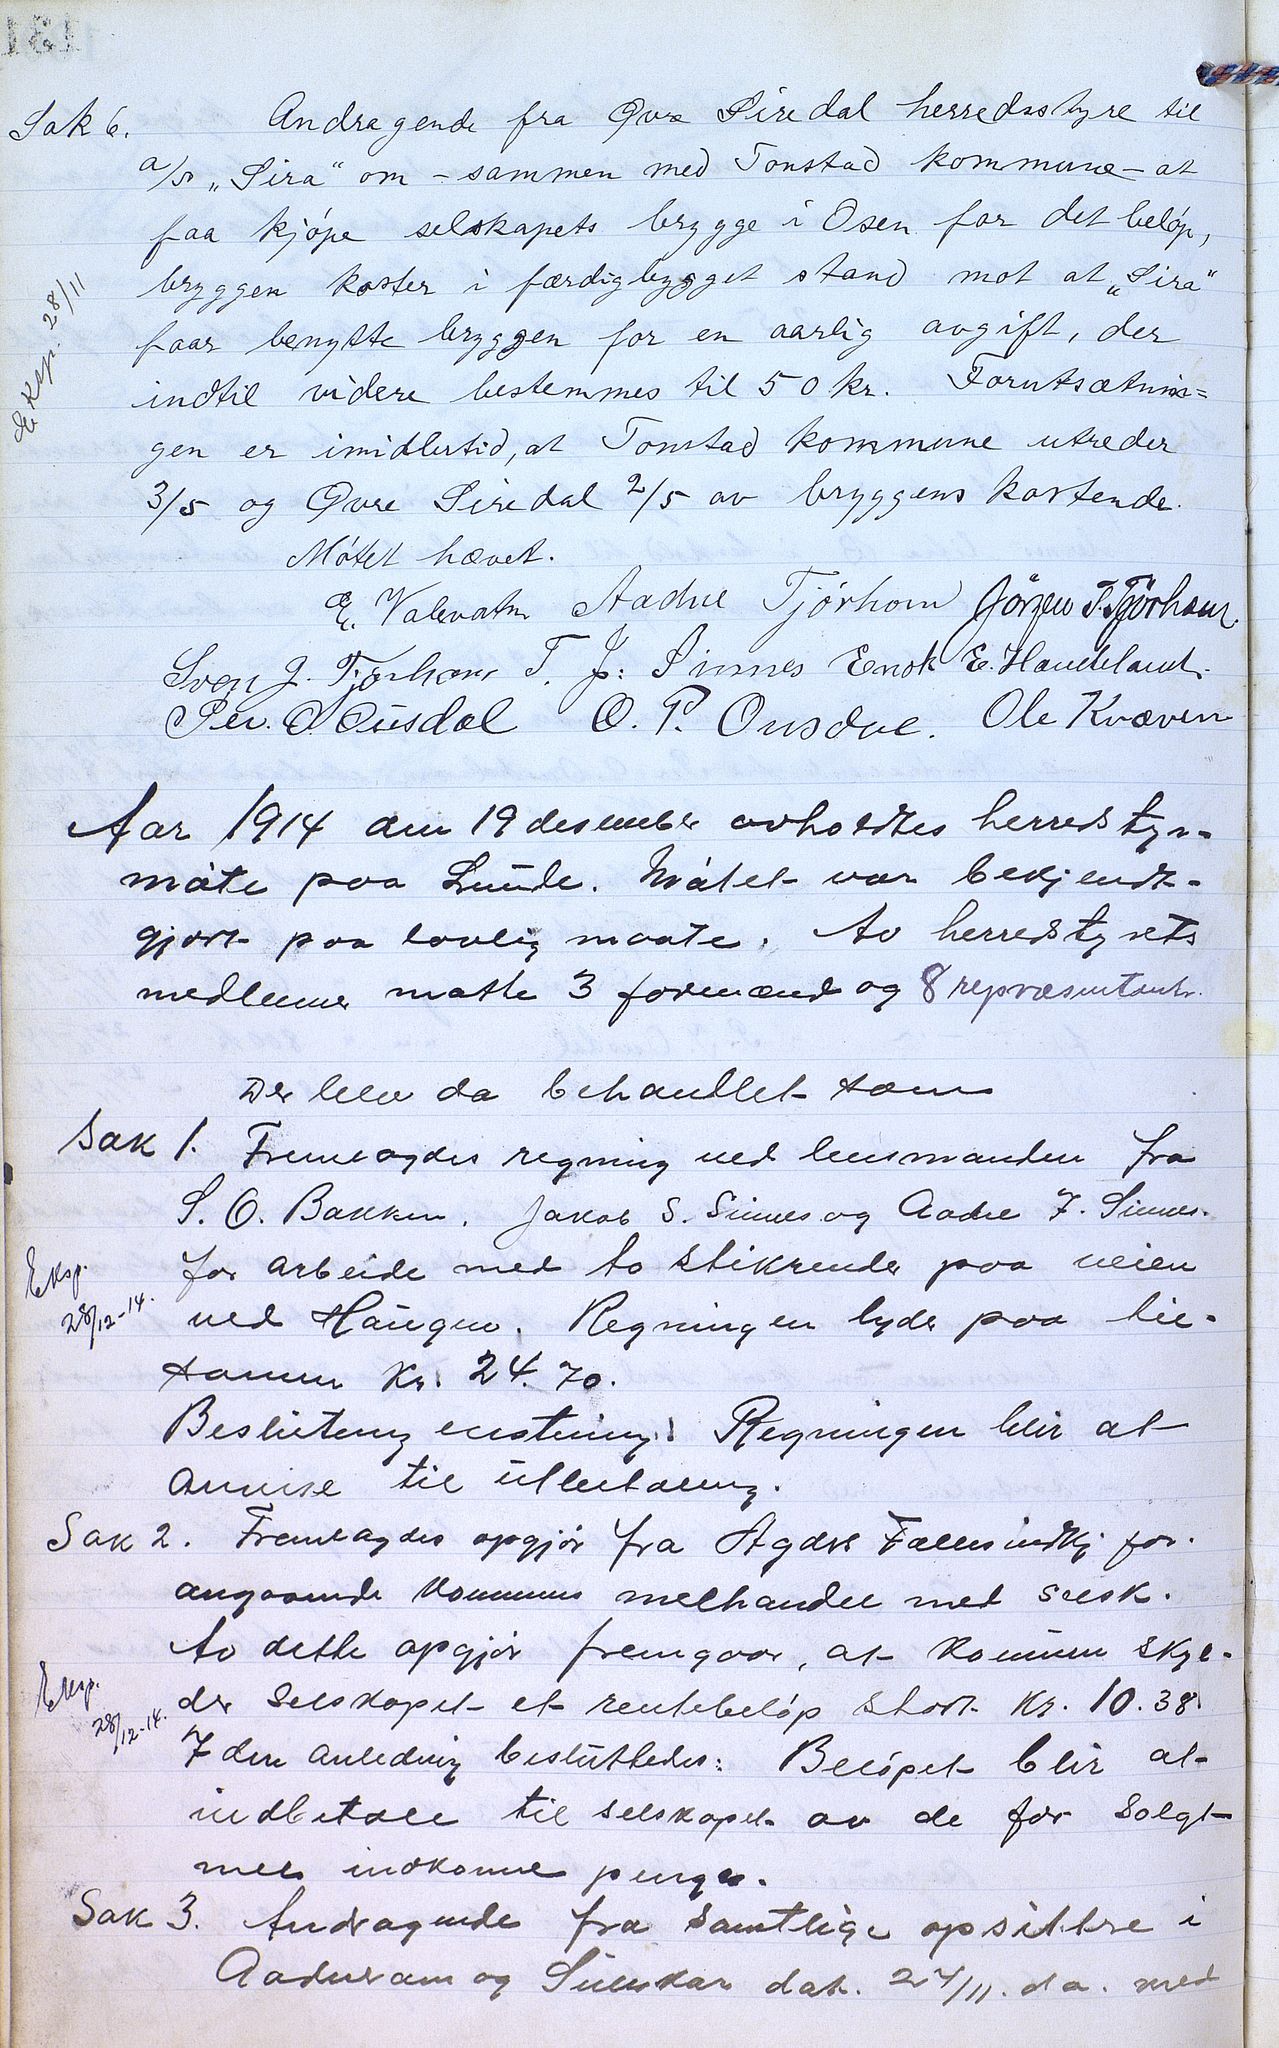 Sak 6. Andragende fra Øvre Siredal herredsstyre til
a/s „Sira“ om – sammen med Tonstad kommune – at
faa kjøpe selskapets brygge i Osen for det beløp,
bryggen koster i færdigbygget stand mot at „Sira“
Eksp. 28/11
faar benytte bryggen for en aarlig avgift, der
indtil videre bestemmes til 50 kr. Forutsætnin=
gen er imidlertid, at Tonstad kommune utreder
3/5 og Øvre Siredal 2/5 av bryggens kostende.
Møtet hævet.
E. Valevatn Aadne Tjørhom Jörgen T. Tjörhom.
Sven J. Tjørhom T. J. Sinnes Enok E. Haueland.
Per. O. Ousdal O. P. Ousdal. Ole Kvæven
Aar 1914 den 19 desember avholdtes herredstyr-
møte paa Lunde. Møtet var bekjendt-
gjort paa lovlig maate. Av herredstyrets
medlemer møtte 3 formænd og 8 repræsentant.
Der blev da behandlet som
Sak 1. Fremlagdes regning ved lensmanden fra
S. O. Bakken. Jakob S. Sinnes og Aadne T. Sinnes.
Eksp. 28/12-14.
for arbeide med to stikrender paa veien
ved Haugen. Regningen lyder paa til-
sammen Kr. 24.70.
Beslutning enstemig: Regningen blir at
anvise til utbetaling.
Sak 2. Fremlagdes opgjør fra Agder Fællesindkj. for.
angaaende kommunens melhandel med selsk.
Av dette opgjør fremgaar, at kommunen skyl-
Eksp. 28/12-14.
der selskapet et rentebeløp stort Kr. 10.38.
I den anledning besluttedes: Beløpet blir at
indbetale til selskapet av de for solgt
mel indkomne penger.
Sak 3. Andragende fra samtlige opsittere i
Aadneram og Suleskar dat. 27/11. d.a. med